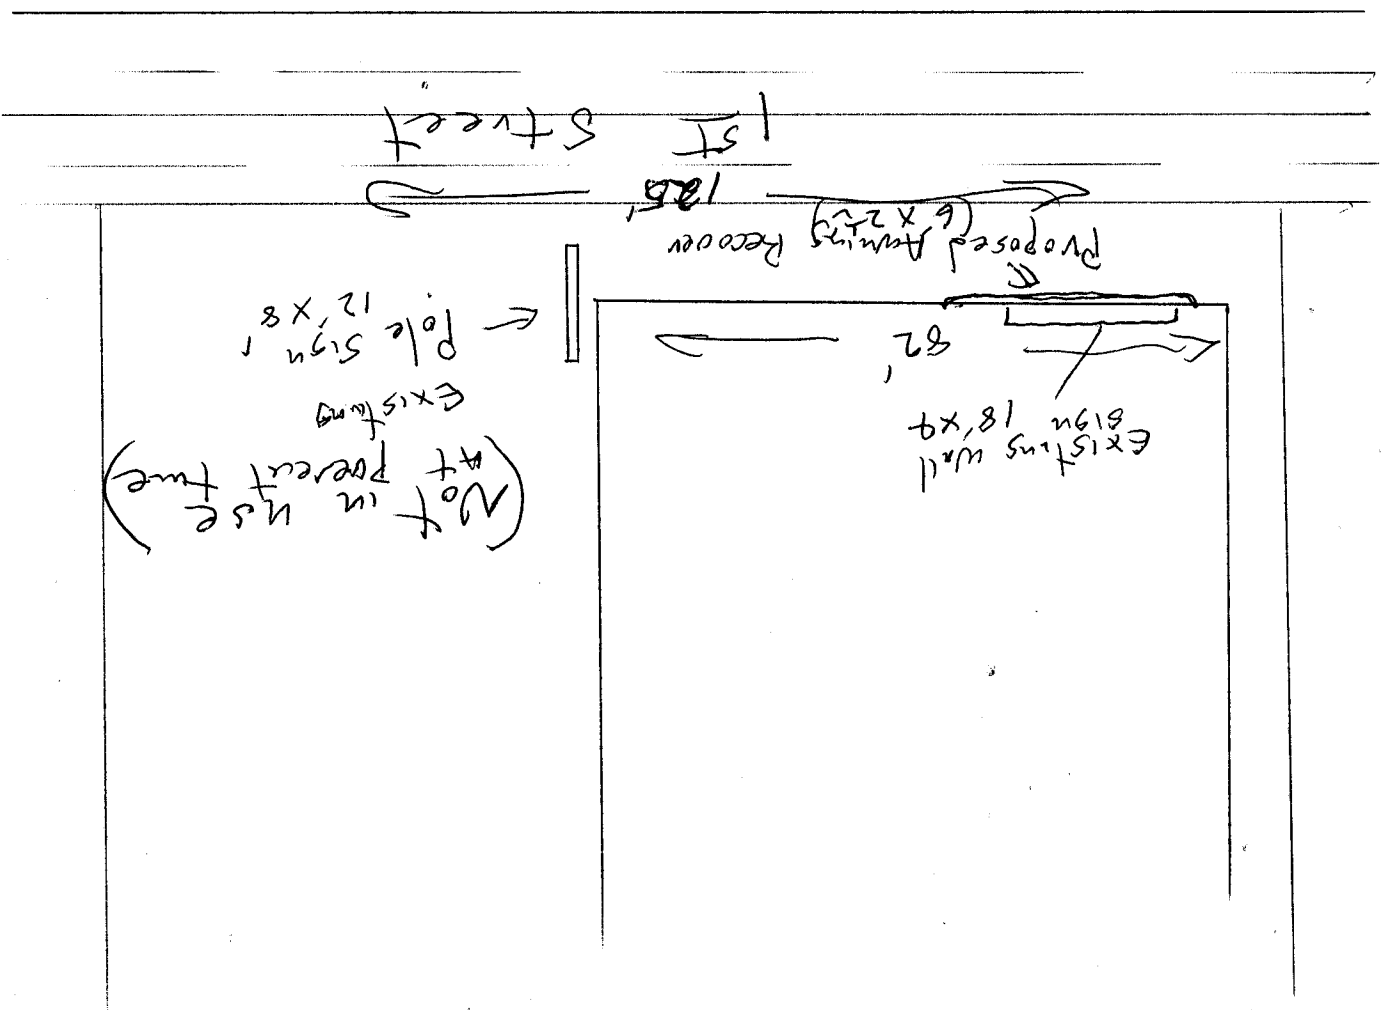 (Not in use
At present time)
Existing
Pole Sign
12' x 8'
Existing Wall
Sign 18' x 4
82'
Proposed Awning Recover
(6 x 24)
125'
1st Street